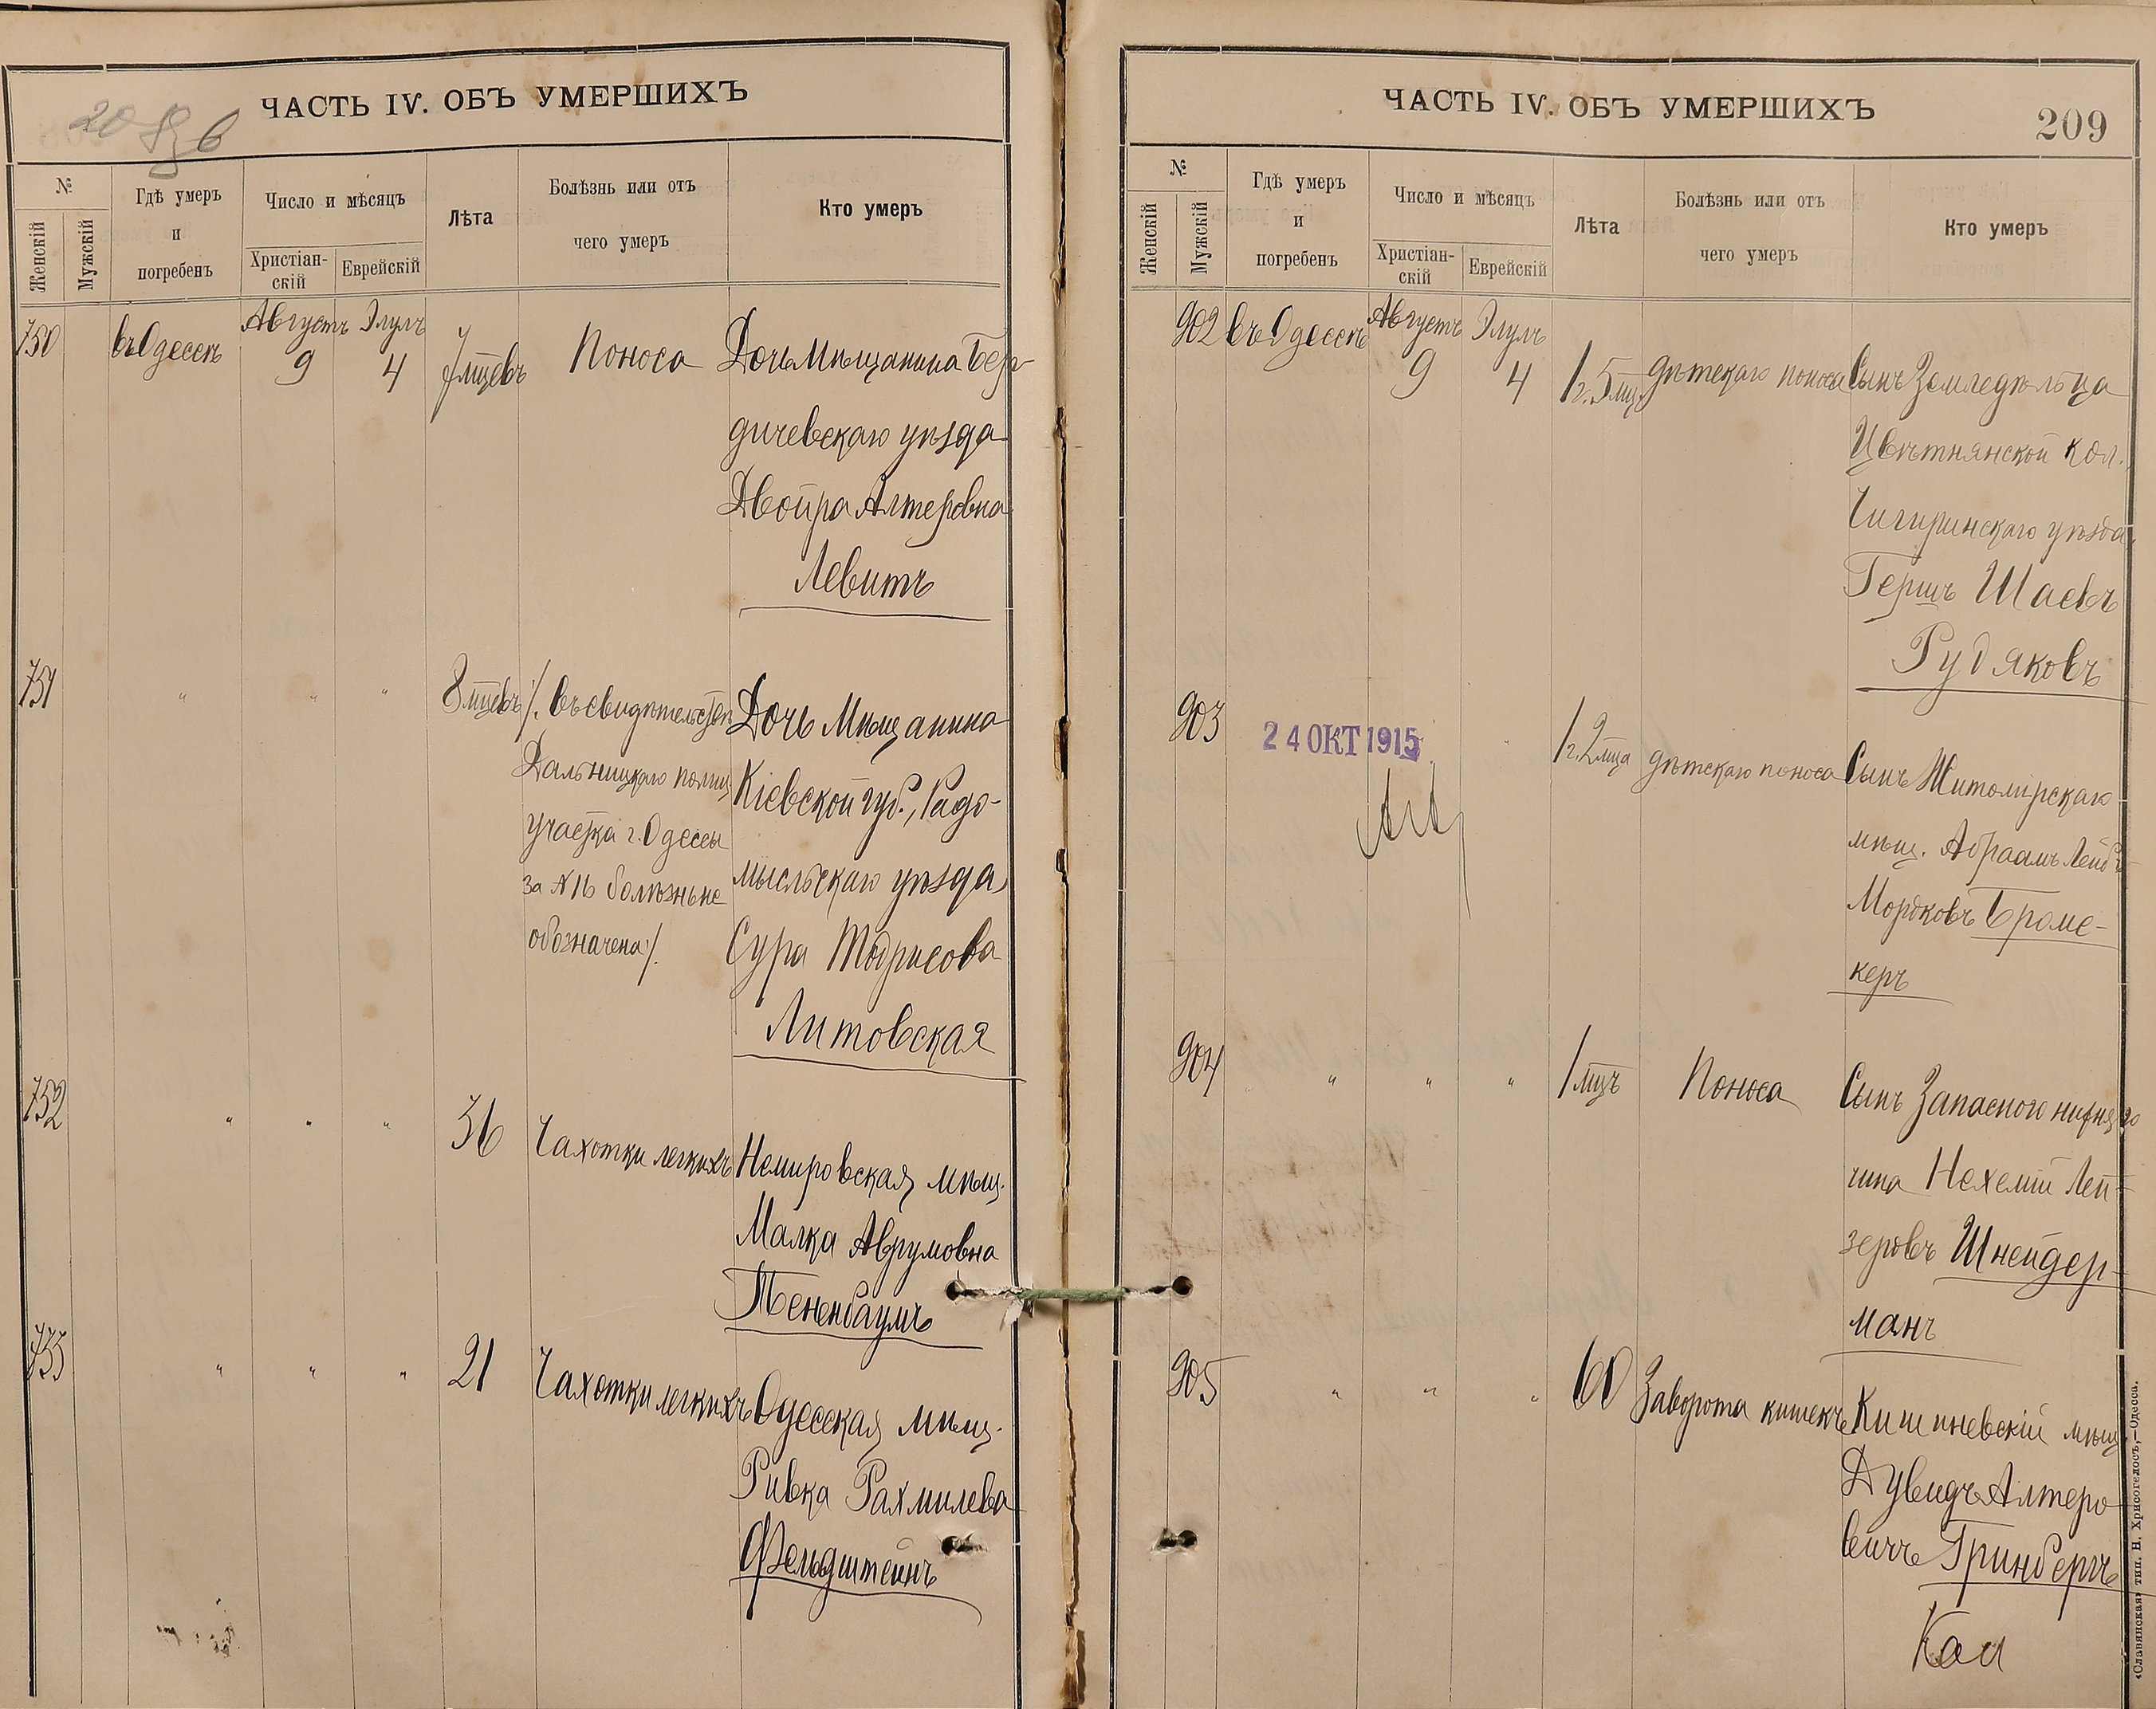 ЧАСТЬ IV. ОБЪ УМЕРШИХЪ
№
Женскій
Мужскій
Гдѣ умеръ
и
погребенъ
Число и мѣсяцъ
Христіан-
скій
Еврейскій
Лѣта
Болѣзнь или отъ
чего умеръ
Кто умеръ
750
въ Одессѣ
Августъ
9
Элулъ
4
7 мцевъ
Поноса
Дочь Мѣщанина Бер-
дичевскаго уѣзда
Двойра Алтеровна
Левитъ
751
" " "
8 мцевъ
/. въ свидѣтельствѣ
Дальницкаго полиц.
участка г. Одессы
за № 16 болѣзнь не
обозначена /.
Дочь Мѣщанина
Кіевской губ., Радо-
мысльскаго уѣзда
Сура Тодрисова
Литовская
752
" " "
36
Чахотки легкихъ
Немировская мѣщ.
Малка Аврумовна
Тененбаумъ
753
" " "
21
Чахотки легкихъ
Одесская мѣщ.
Ривка Рахмилева
Фельдштейнъ
ЧАСТЬ IV. ОБЪ УМЕРШИХЪ
209
№
Женскій
Мужскій
Гдѣ умеръ
и
погребенъ
Число и мѣсяцъ
Христіан-
скій
Еврейскій
Лѣта
Болѣзнь или отъ
чего умеръ
Кто умеръ
902
въ Одессѣ
Августъ
9
Элулъ
4
1 г. 5 мц.
дѣтскаго поноса
Сынъ Земледѣльца
Цвѣтнянской кол.
Чигиринскаго уѣзда
Гершъ Шаевъ
Рудяковъ
903
24 ОКТ 1915
"
1 г. 2 мца
дѣтскаго поноса
Сынъ Житомірскаго
мѣщ. Абраамъ Лейб-
Мордковъ Броме-
керъ
904
" " "
1 мцъ
Поноса
Сынъ Запасного нижняго
чина Нехемій Лей-
зеровъ Шнейдер-
манъ
905
" " "
60
Заворота кишекъ
Кишиневскій мѣщ.
Дувидъ Алтеро-
вичъ Гринбергъ
«Славянская» тип. Н. Хрисогелосъ,—Одесса.